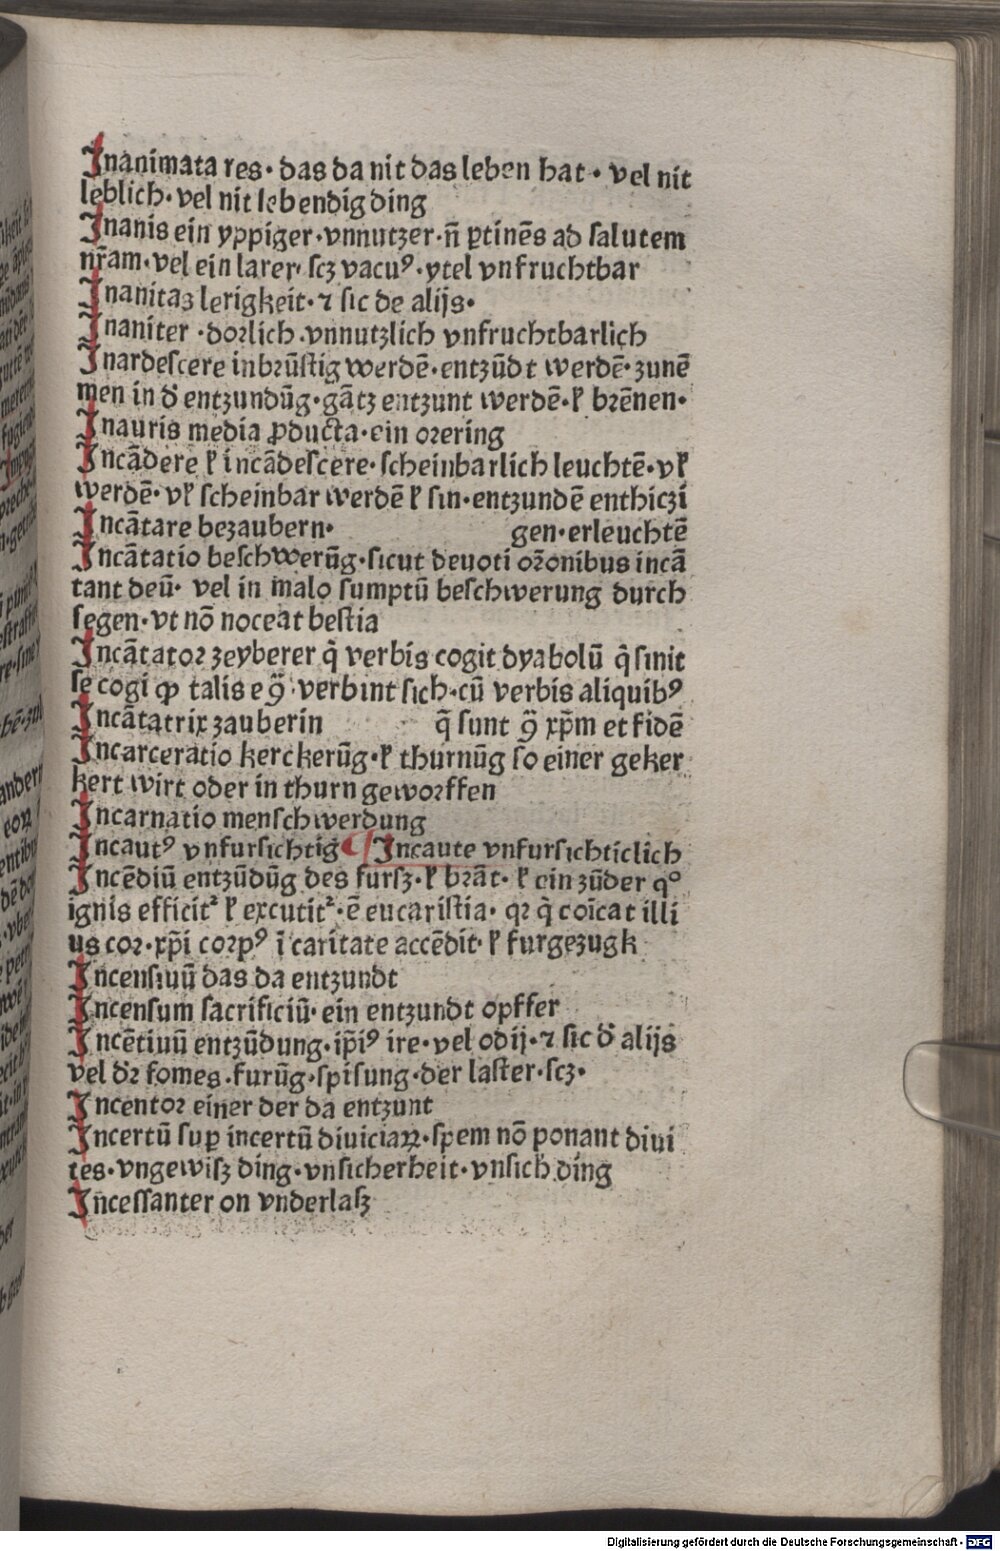 Inanimata res· das da nit das leben hat· vel nit
leblich· vel nit lebendig ding
Inanis ein yppiger·vnnutzer·n̄ ꝑtinēs ad salutem
nr̄am·vel ein larer· scꝫ vacuꝰ·ytel vnfruchtbar
Inanitaꝫ lerigkeit·⁊ sic de alijs·
Inaniter ·dorlich·vnnutzlich vnfruchtbarlich
Inardescere inbrūstig werdē·entzūdt werdē·zunē
men in d̄ entzundūg·gātz entzunt werdē·ꝉ brēnen·
Inauris media ꝓducta·ein orering
Incādere ꝉ incādescere·scheinbarlich leuchtē·vꝉ
werdē·vꝉ scheinbar werdē ꝉ sin·entzundē enthiczi
Incātare bezaubern· gen·erleuchtē
Incātatio beschwerūg·sicut deuoti or̄onibus incā
tant deū· vel in malo sumptū beschwerung durch
segen·vt nō noceat bestia
Incātator zeyberer q̄ verbis cogit dyabolū q̄ sinit
se cogi ꝙ talis e ꝯ̄·verbint sich·cū verbis aliquibꝰ
Incātatrix zauberin q̄ sunt ꝯ̄ xp̄m et fidē
Incarceratio kerckerūg·ꝉ thurnūg so einer geker
kert wirt oder in thurn geworffen
Incarnatio menschwerdung
Incautꝰ vnfursichtig ¶ Incaute vnfursichticlich
Incēdiū entzūdūg des fursꝫ·ꝉ brāt· ꝉ ein zūder qͦ
ignis efficitᷣ ꝉ excutitᷣ·ē eucaristia· qꝛ q̄ coīcat illi
us cor·xp̄i corpꝰ ī caritate accēdit· ꝉ furgezugk
Incensiuū das da entzundt
Incensum sacrificiū·ein entzundt opffer
Incētiuū entzūdung·ip̄iꝰ ire·vel odij·⁊ sic d̄ alijs
vel dr̄ fomes·furūg·spisung·der laster·scꝫ·
Incentor einer der da entzunt
Incertū suꝑ incertū diuiciaꝝ·spem nō ponant diui
tes·vngewisꝫ ding·vnsicherheit·vnsich ding
Incessanter on vnderlasꝫ
Digitalisierung gefördert durch die Deutsche Forschungsgemeinschaft - DFG